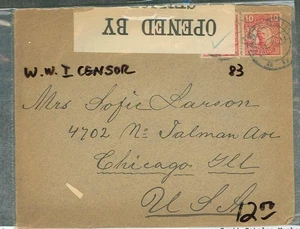 OPENED BY
10
W.W.I CENSOR
83
Mrs Sofie Larson
4702 No Talman Ave
Chicago Ill
U S A
12.00